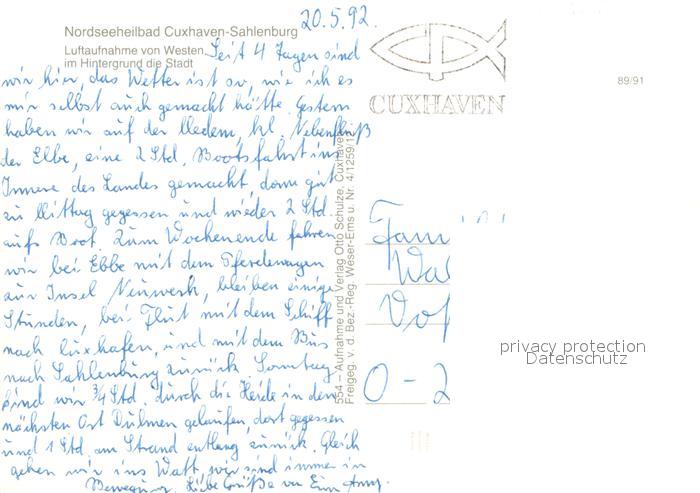 20.5.92.
Nordseeheilbad Cuxhaven-Sahlenburg
Luftaufnahme von Westen,
im Hintergrund die Stadt
Seit 4 Tagen sind
wir hier, das Wetter ist so, wie ich es
mir selbst auch gemacht hätte. Gestern
haben wir auf der Medem, kl. Nebenfluß
der Elbe, eine 2 Std. Bootsfahrt ins
Innere des Landes gemacht, dann gut
zu Mittag gegessen und wieder 2 Std.
aufs Boot. Zum Wochenende fahren
wir bei Ebbe mit dem Pferdewagen
zur Insel Neuwerk, bleiben einige
Stunden, bei Flut mit dem Schiff
nach Cuxhafen, und mit dem Bus
nach Sahlenburg zurück. Sonntag
sind wir ¾ Std. durch die Heide in den
nächsten Ort Dulmen gelaufen, dort gegessen
und 1 Std. am Strand entlang zurück. Gleich
gehen wir ins Watt, wir sind immer in
Bewegung. Liebe Grüße von
554 – Aufnahme und Verlag Otto Schulze, Cuxhaven
Freigeg. v. d. Bez.-Reg. Weser-Ems u. Nr. 4/1259/1
CUXHAVEN
89/91
Fam
Wa
O - 2
privacy protection
Datenschutz